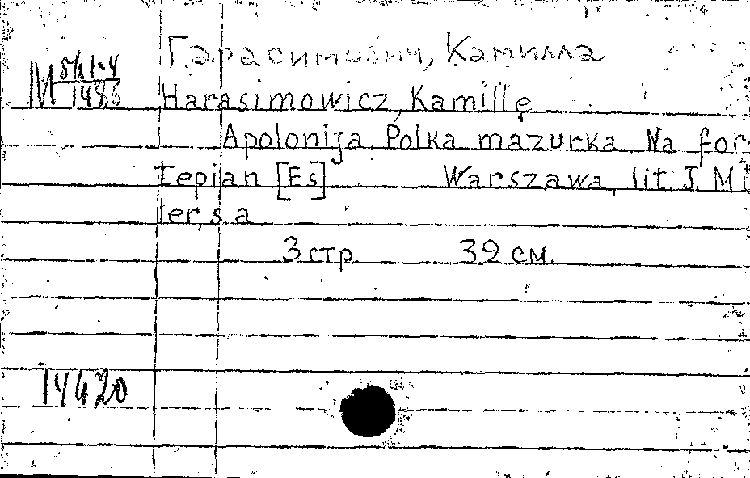 Гарасимович, Камилла
М
1486
Harasimowicz, Kamillę
Apolonija Polka mazurka Na for-
tepian [Es] Warszawa, lit J Mi
ler,s a
3 стр. 32 см.
14420